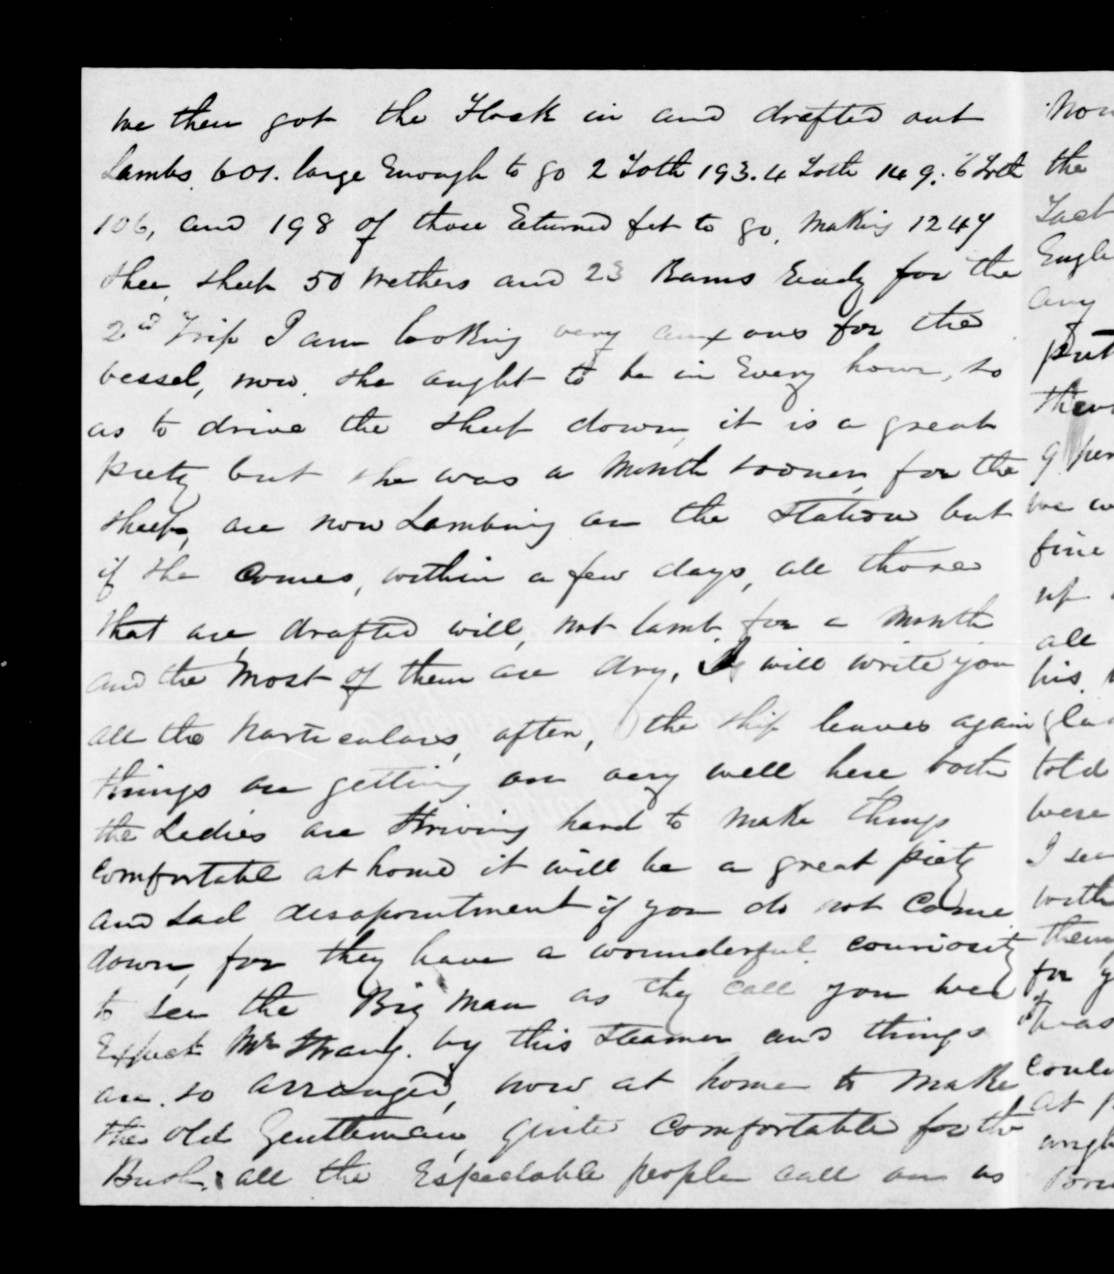 we then got the Flock in and drafted out
Lambs 601. large Enough to go 2 Toth 193. 4 Toth 149. 6 Toth
106, and 198 of those Eturned fet to go, making 1247
shee, sheep 50 Wethers and 23 Rams Ready for the
2d Trip I am looking very anxous for the
vessel, now she aught to be in Every hour, so
as to drive the sheep down, it is a great
piety but she was a month sooner, for the
sheep, are now Lambing on the Station but
if she comes, within a few days, all those
that are drafted will, not lamb for a month
and the most of them are dry, I will write you
all the particulars, after, the ship leaves again
things are getting on very well here both
the Ledies are striving hard to make things
comfortable at home it will be a great piety
and sad disapointment if you do not come
down, for they have a wounderful couriosity
to see the Big man as they call you wee
Expect Mr Strang. by this steamer and things
are so arranged, now at home to make
the old Gentleman, quite comfortable for the
Bush. all the Espectable people call on us
the
any
put
we
fine
up
all
his
told
were
I
with
them
for
at